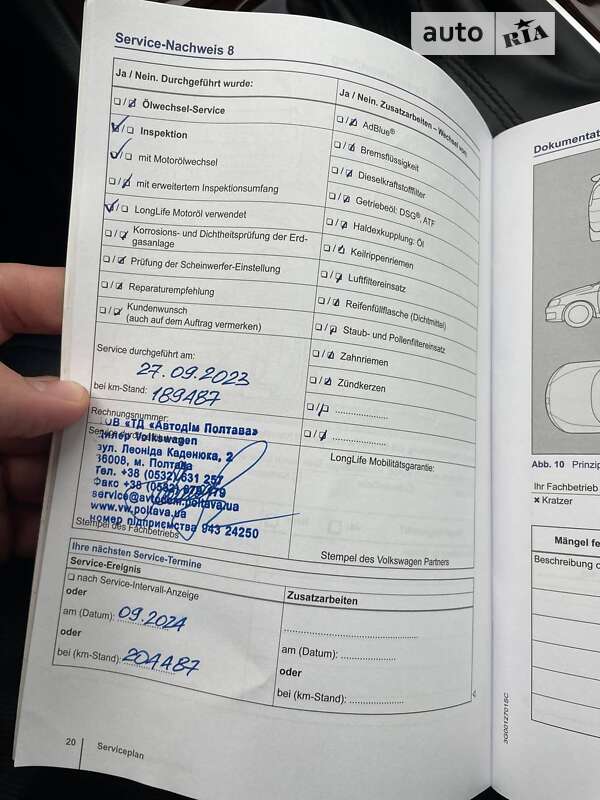 auto RIA
Service-Nachweis 8
Ja / Nein. Durchgeführt wurde:
❏ / ❏ Ölwechsel-Service
❏ / ❏ Inspektion
❏ / ❏ mit Motorölwechsel
❏ / ❏ mit erweitertem Inspektionsumfang
❏ / ❏ LongLife Motoröl verwendet
❏ / ❏ Korrosions- und Dichtheitsprüfung der Erd-
gasanlage
❏ / ❏ Prüfung der Scheinwerfer-Einstellung
❏ / ❏ Reparaturempfehlung
❏ / ❏ Kundenwunsch
(auch auf dem Auftrag vermerken)
Ja / Nein. Zusatzarbeiten – Wechsel von:
❏ / ❏ AdBlue®
❏ / ❏ Bremsflüssigkeit
❏ / ❏ Dieselkraftstofffilter
❏ / ❏ Getriebeöl: DSG®, ATF
❏ / ❏ Haldexkupplung: Öl
❏ / ❏ Keilrippenriemen
❏ / ❏ Luftfiltereinsatz
❏ / ❏ Reifenfüllflasche (Dichtmittel)
❏ / ❏ Staub- und Pollenfiltereinsatz
❏ / ❏ Zahnriemen
❏ / ❏ Zündkerzen
❏ / ❏ ....................
❏ / ❏ ....................
Service durchgeführt am:
27.09.2023
bei km-Stand: 189487
Rechnungsnummer:
ТОВ «ТД «Автодім Полтава»
Дилер Volkswagen
вул. Леоніда Каденюка, 2
36008, м. Полтава
Тел. +38 (0532) 631 257
Факс +38 (0532)
service@avtodom.poltava.ua
www.vw.poltava.ua
номер підприємства 943 24250
Stempel des Fachbetriebs
LongLife Mobilitätsgarantie:
Stempel des Volkswagen Partners
Ihre nächsten Service-Termine
Service-Ereignis
❏ nach Service-Intervall-Anzeige
oder
am (Datum): 09.2024
oder
bei (km-Stand): 204487
Zusatzarbeiten
....................
am (Datum): ....................
oder
bei (km-Stand): ....................
20
Serviceplan
3G0012701SC
Abb. 10 Prinzip
Ihr Fachbetrieb
× Kratzer
Mängel